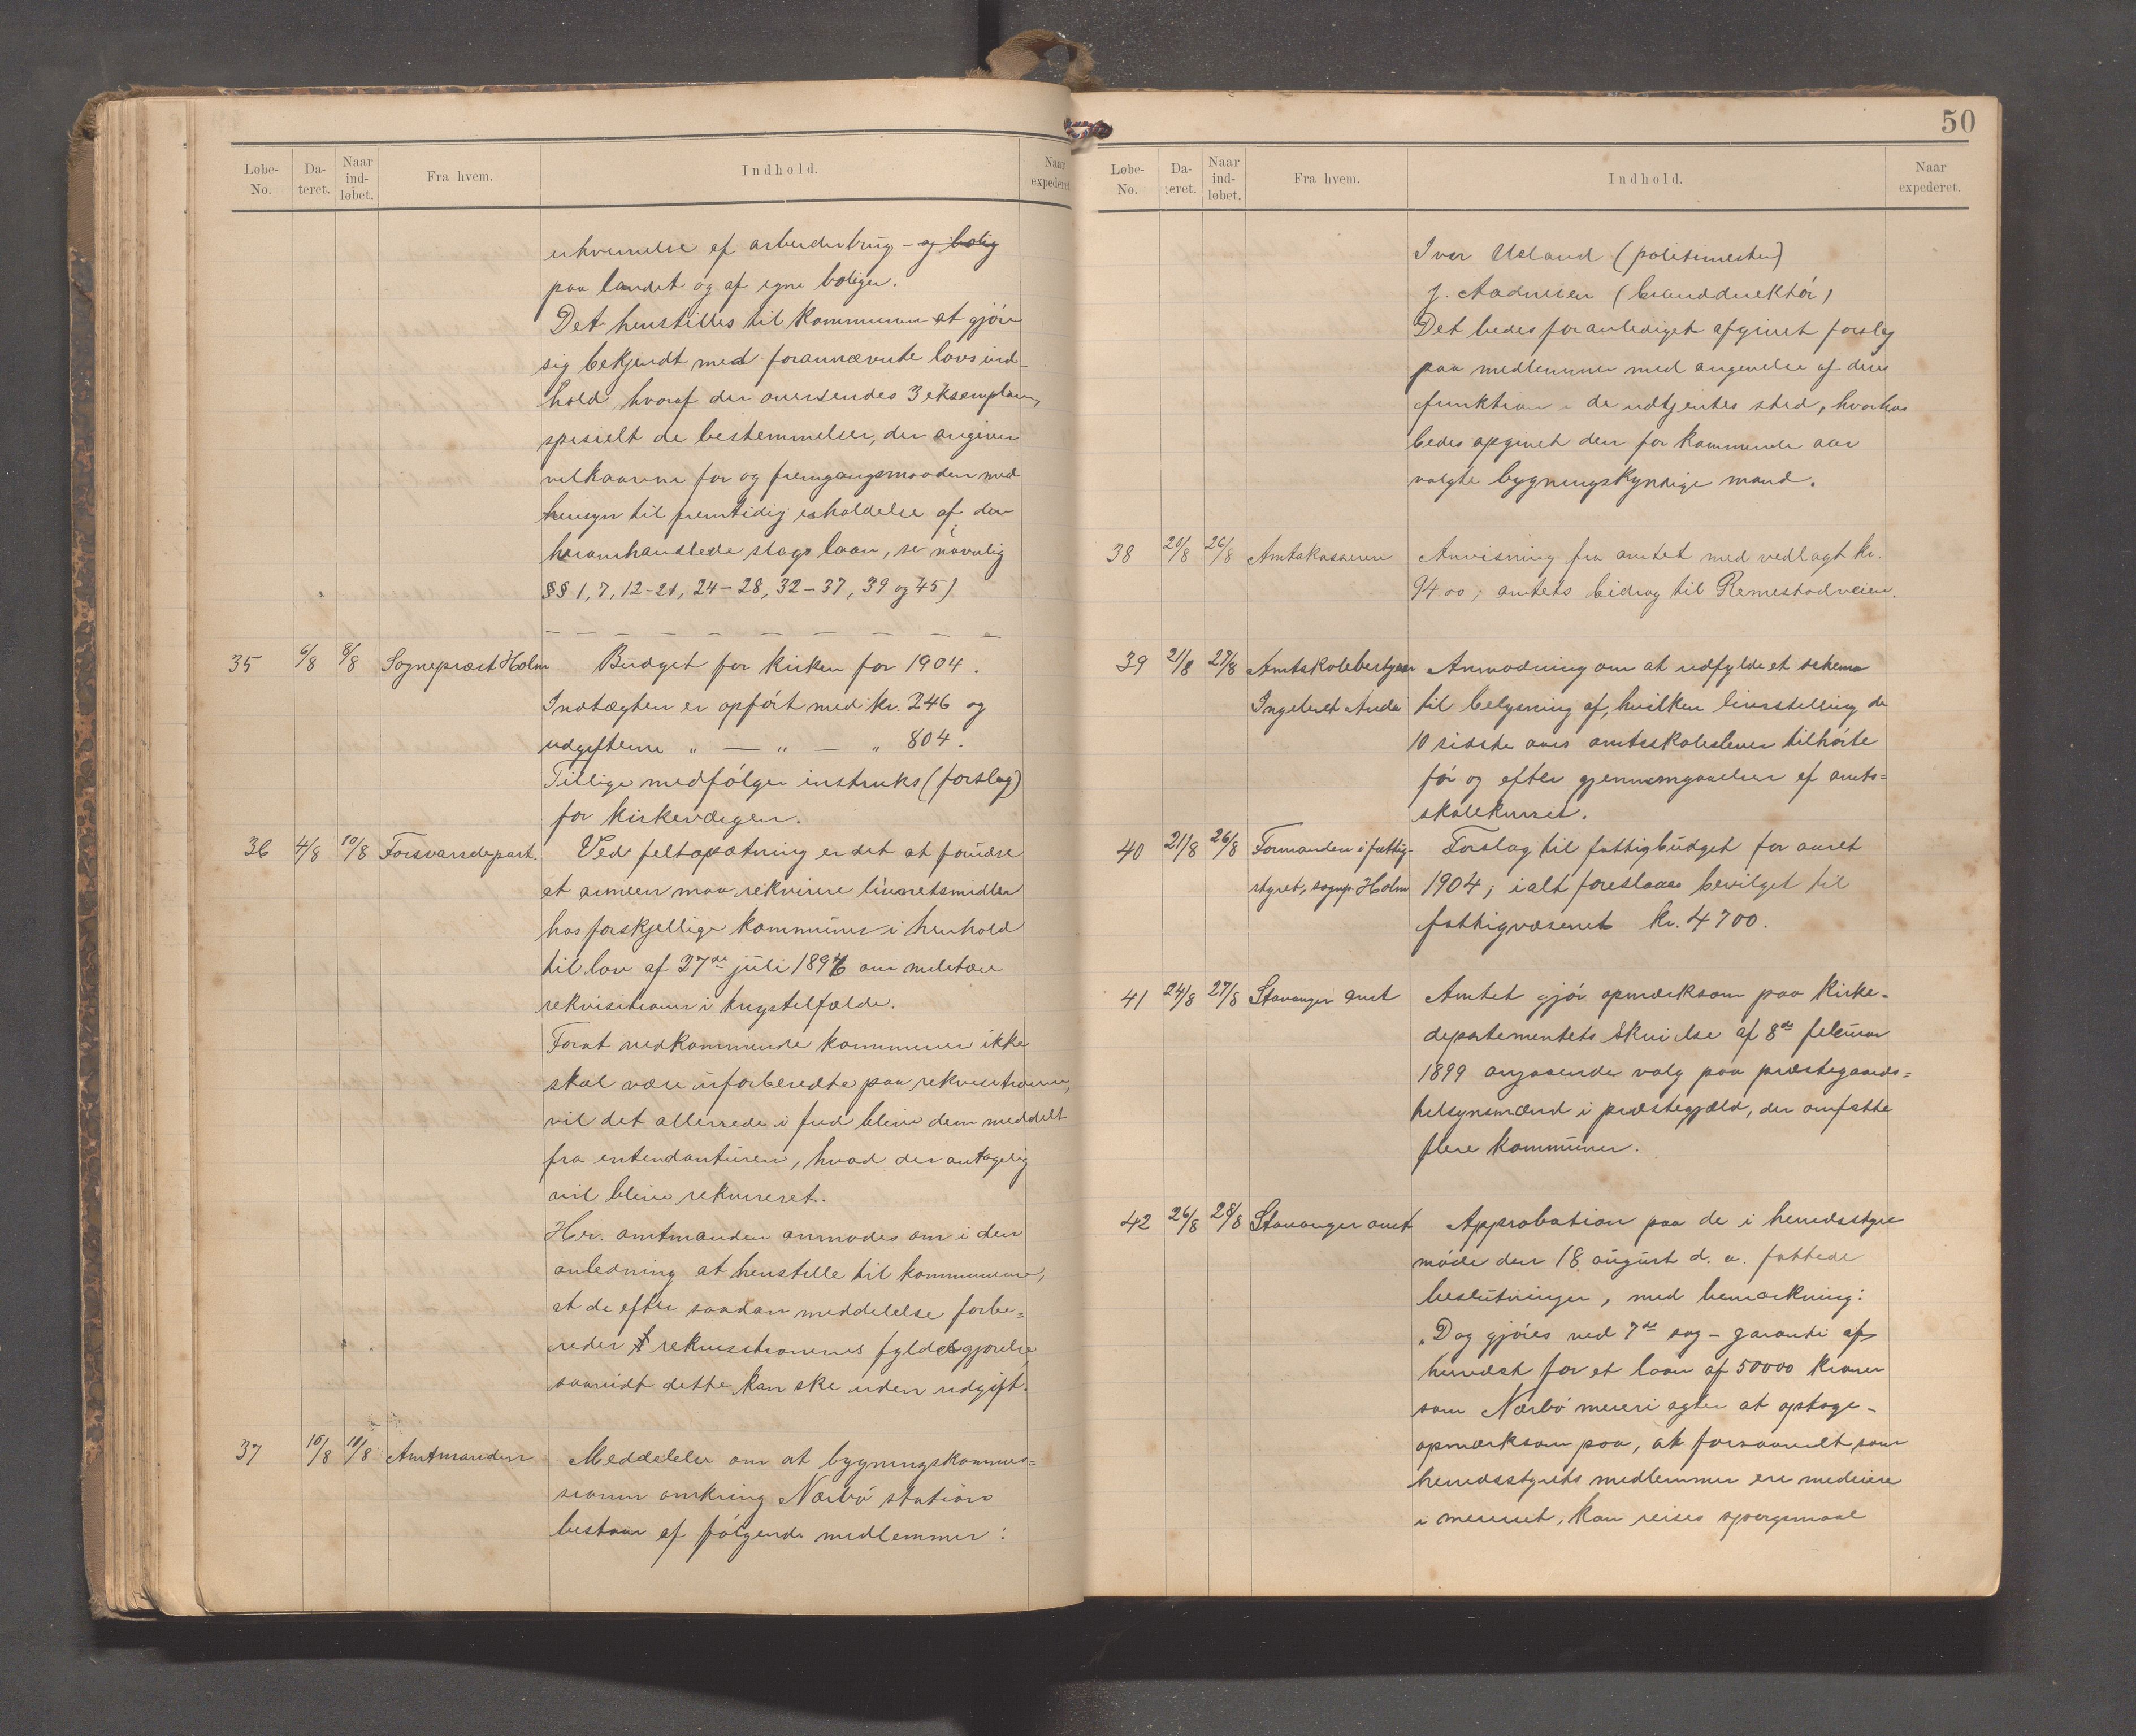 Løbe-No. Da-teret. Naar ind-løbet. Fra hvem. Indhold. Naar expederet.
erhvervelse af arbeiderbrug - og bolig
paa landet og af egne boliger.
Det henstilles til kommunen at gjøre
sig bekjendt med forannævnte lovs ind-
hold hvoraf der oversendes 3 eksemplarer,
spesielt de bestemmelser, der angiver
vilkaarene for og fremgangsmaaden med
hensyn til fremtidig erholdelse af den
heromhandlede slags laan, se navnlig
§§ 1, 7, 12-21, 24-28, 32-37, 39 og 45)
35 6/8 8/8 Sognepræst Holm Budget for kirken for 1904.
Indtægten er opført med kr. 246 og
udgifterne " — " — " 804.
Tillige medfølger instruks (forslag)
for kirkeværgen.
36 4/8 10/8 Forsvarsdepart. Ved feltopsætning er det at forudse
at armeen maa rekvirere livnetsmidler
hos forskjellige kommuner i henhold
til lov af 27de juli 1896 om militære
rekvisitioner i krigstilfælde.
Forat vedkommende kommuner ikke
skal være uforberedte paa rekvisitionerne,
vil det allerede i fred blive dem meddelt
fra intendanturen, hvad der antagelig
vil blive rekvireret.
Hr. amtmanden anmodes om i den
anledning at henstille til kommunerne,
at de efter saadan meddelelse forbe-
reder rekvisitionernes fyldestgjørelse
saavidt dette kan ske uden udgift.
37 10/8 10/8 Amtmanden Meddelelse om at bygningskommis-
sionen omkring Nærbø station
bestaar af følgende medlemmer:
50
Løbe-No. Da-teret. Naar ind-løbet. Fra hvem. Indhold. Naar expederet.
Iver Usland (politimester)
J. Aadnesen (branddirektør)
Det bedes foranlediget afgivet forslag
paa medlemmer med angivelse af deres
funktion i de udtjentes sted, hvorhos
bedes opgivet den for kommende aar
valgte bygningskyndige mand.
38 20/8 26/8 Amtskassereren Anvisning fra amtet med vedlagt kr.
94.00; amtets bidrag til Remestadveien.
39 21/8 27/8 Amtskolebestyrer Anmodning om at udfylde et schema
Ingebret Auda til belysning af, hvilken livsstilling de
10 sidste aars amtsskoleelever tilhørte
før og efter gjennemgaaelsen af amts-
skolekurset.
40 21/8 26/8 Formanden i fattig- Forslag til fattigbudget for aaret
styret, sognp. Holm 1904; ialt foreslaaes bevilget til
fattigvæsenet kr. 4700.
41 24/8 27/8 Stavanger amt Amtet gjør opmærksom paa kirke-
departementets skrivelse af 8de februar
1899 angaaende valg paa præstegaards-
tilsynsmænd i præstegjæld, der omfatte
flere kommuner.
42 26/8 28/8 Stavanger amt Approbation paa de i herredsstyre
møde den 18 august d. a. fattede
beslutninger, med bemærkning:
„Dog gjøres ved 7de sag - garanti af
herredet for et laan af 50000 kroner
som Nærbø meieri agter at optage -
opmærksom paa, at forsaavidt som
herredsstyrets medlemmer ere medeiere
i meieriet, kan reises spørgsmaal